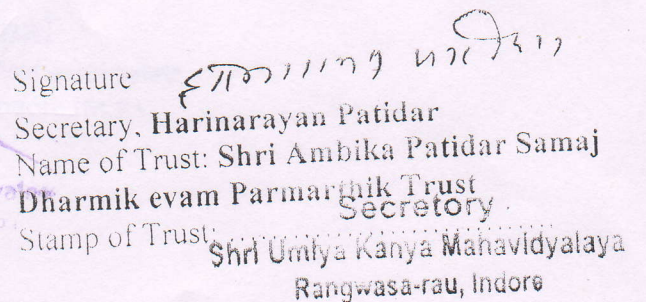 Signature हरिनारायण पाटीदार
Secretary, Harinarayan Patidar
Name of Trust: Shri Ambika Patidar Samaj
Dharmik evam Parmarthik Trust
Secretory
Stamp of Trust:........................................
Shri Umiya Kanya Mahavidyalaya
Rangwasa-rau, Indore